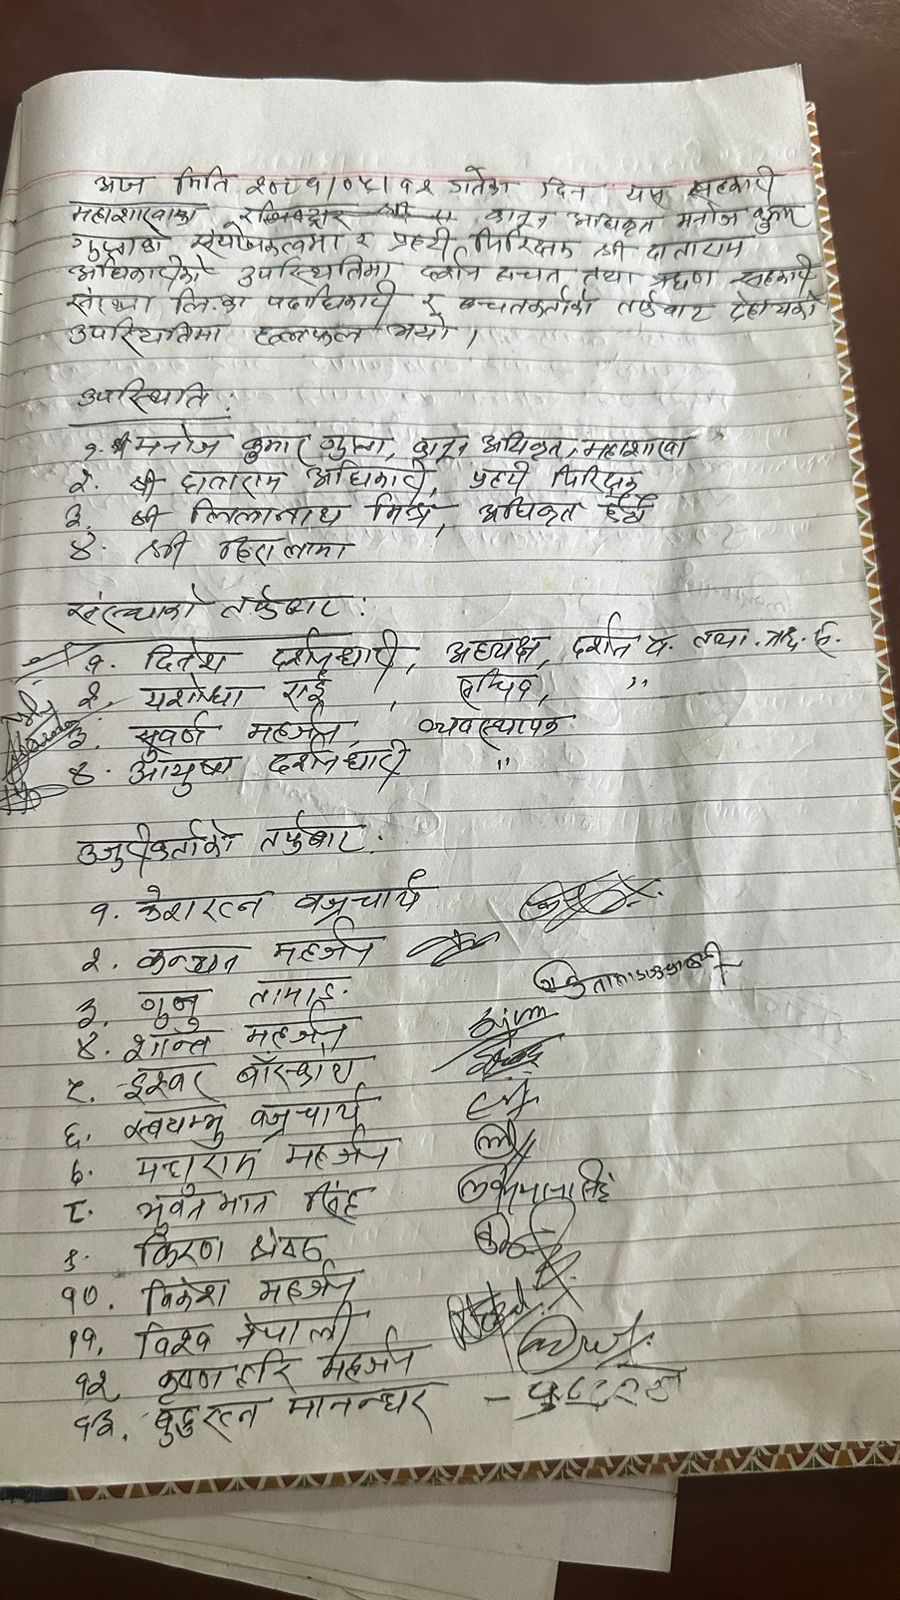 आज मिति २०८१/०५/१२ गतेका दिन यस सहकारी
महाशाखाका रजिष्ट्रार श्री कानून अधिकृत मनोज कुमार
गुप्ताको संयोजकत्वमा र प्रहरी निरिक्षक श्री दाताराम
अधिकारीको उपस्थितिमा दर्शन बचत तथा ऋण सहकारी
संस्था लि.का पदाधिकारी र बचतकर्ताका तर्फबाट देहायको
उपस्थितिमा छलफल भयो ।
उपस्थिति :
१. श्री मनोज कुमार गुप्ता, कानून अधिकृत, महाशाखा
२. श्री दाताराम अधिकारी, प्रहरी निरिक्षक
३. श्री लिलानाथ मिश्र, अधिकृत छैठौं
४. श्री हिरा लामा
संस्थाको तर्फबाट :
१. दिनेश दर्शनधारी, अध्यक्ष, दर्शन ब. तथा. ऋ.
२. यशोधा राई, सचिव, "
३. सुवर्ण महर्जन, व्यवस्थापक
४. आयुष्य दर्शनधारी "
उजुरीकर्ताको तर्फबाट :
१. केशरत्न बज्रचार्य
२. महर्जन
३. गुजु तामाङ
४. शान्त महर्जन
५. ईश्वर बाँस्कोटा
६. स्वयम्भु बज्रचार्य
७. मधुराम महर्जन
८. भुवनमान सिंह
९. किरण श्रेष्ठ
१०. विकेश महर्जन
११. विश्व नेपाली
१२ कृष्ण हरि महर्जन
१३. बुद्धरत्न मानन्धर –